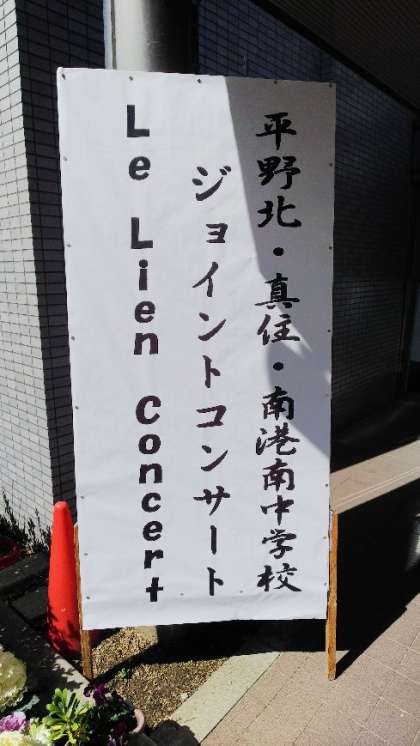 平野北・真住・南港南中学校
ジョイントコンサート
Le Lien Concert